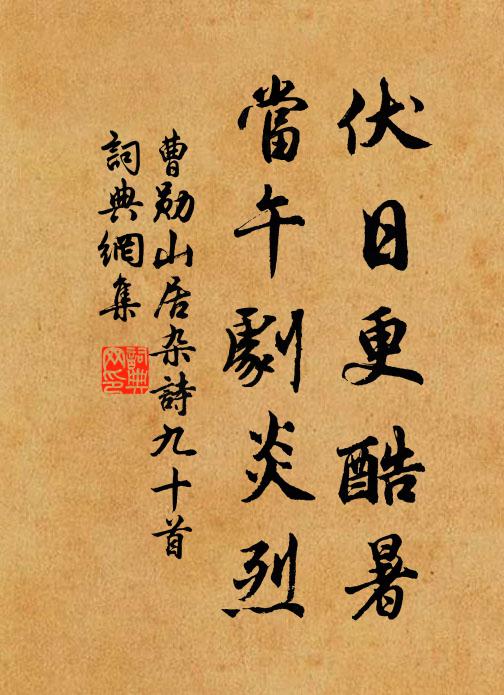 伏日更酷暑
當午劇炎烈
曹勛山居杂詩九十首
詞典網集
詞典網印